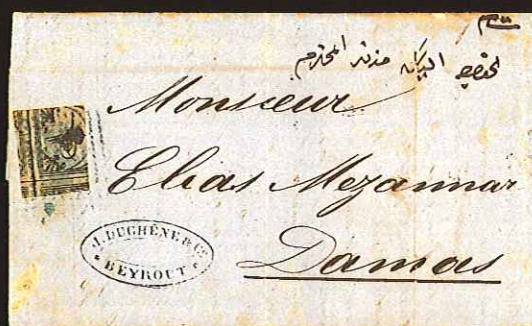 المحترم
Monsieur
Elias Mezannar
Damas
J. DUCHÊNE & Cº
BEYROUT